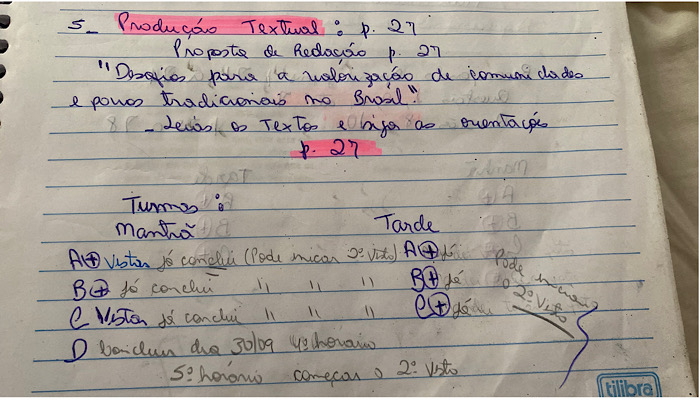 5- Produção Textual: p. 27
Proposta de Redação p. 27
"Desafios" para a valorização de comunidades
e povos tradicionais no Brasil".
- Leias os Textos e siga as orientações
p. 27
Turmas:
Manhã Tarde
A+ Vistos já conclui (Pode iniciar 2º Visto) A+ já
B+ já conclui " " " B+ já
C Vistos já conclui " " " C+ já
Pode iniciar
o 2º Visto
D dia 30/09 4º horário
5º horário começar o 2º Visto
tilibra